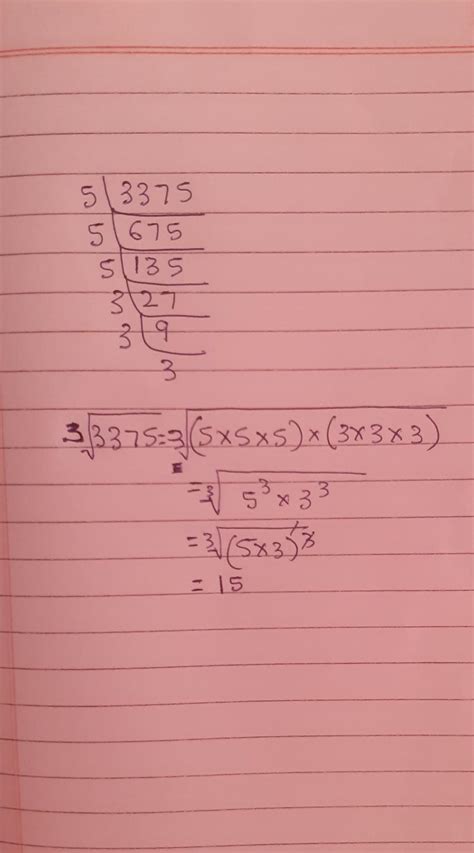 5 3375
5 675
5 135
3 27
3 9
3
∛3375 = ∛(5×5×5)×(3×3×3)
= ∛5³×3³
= ∛(5×3)³
= 15